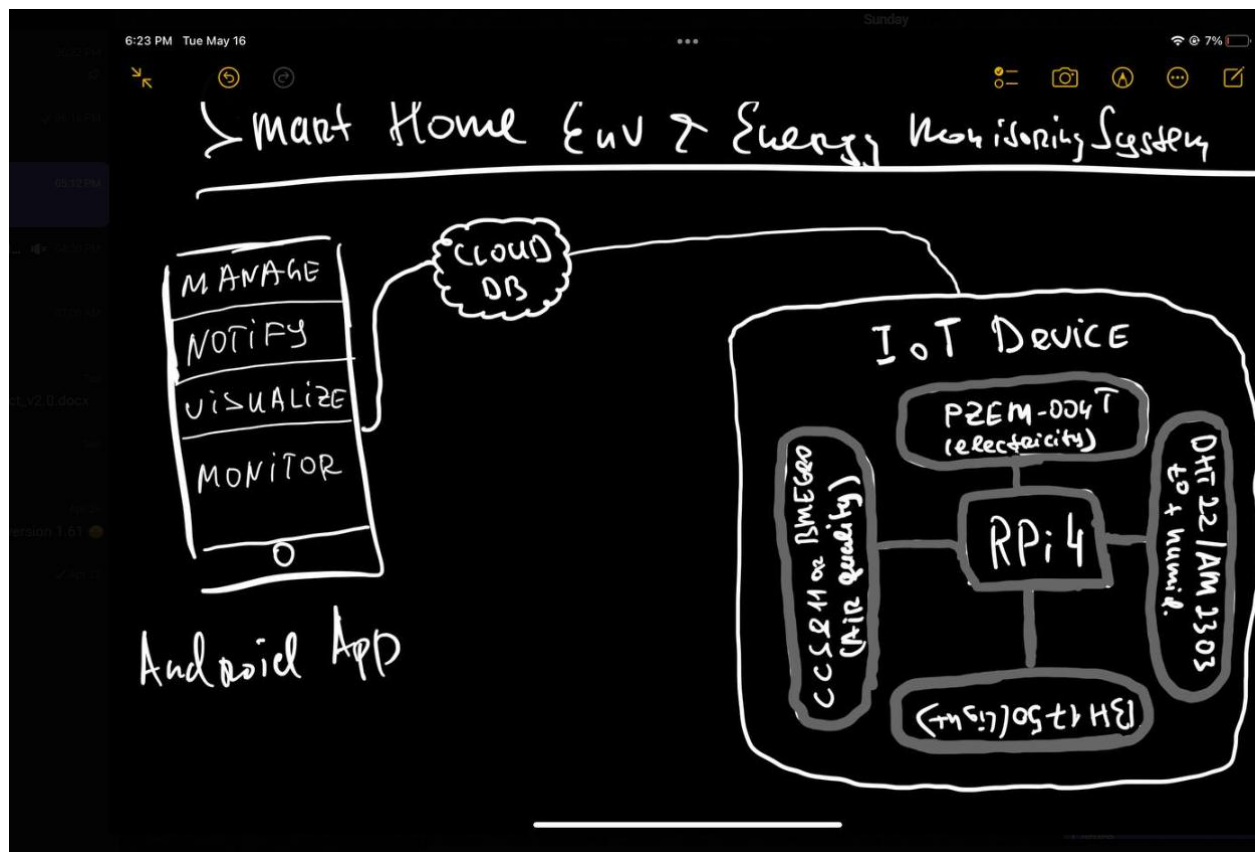 Sunday
6:23 PM Tue May 16
7%
Smart Home Env & Energy Monitoring System
MANAGE
NOTIFY
VISUALIZE
MONITOR
Android App
CLOUD
DB
IoT DEVICE
PZEM-004T
(electricity)
CCS811 or BME680
(AIR quality)
RPi4
DHT22/AM2303
t° + humid.
BH1750(Light)